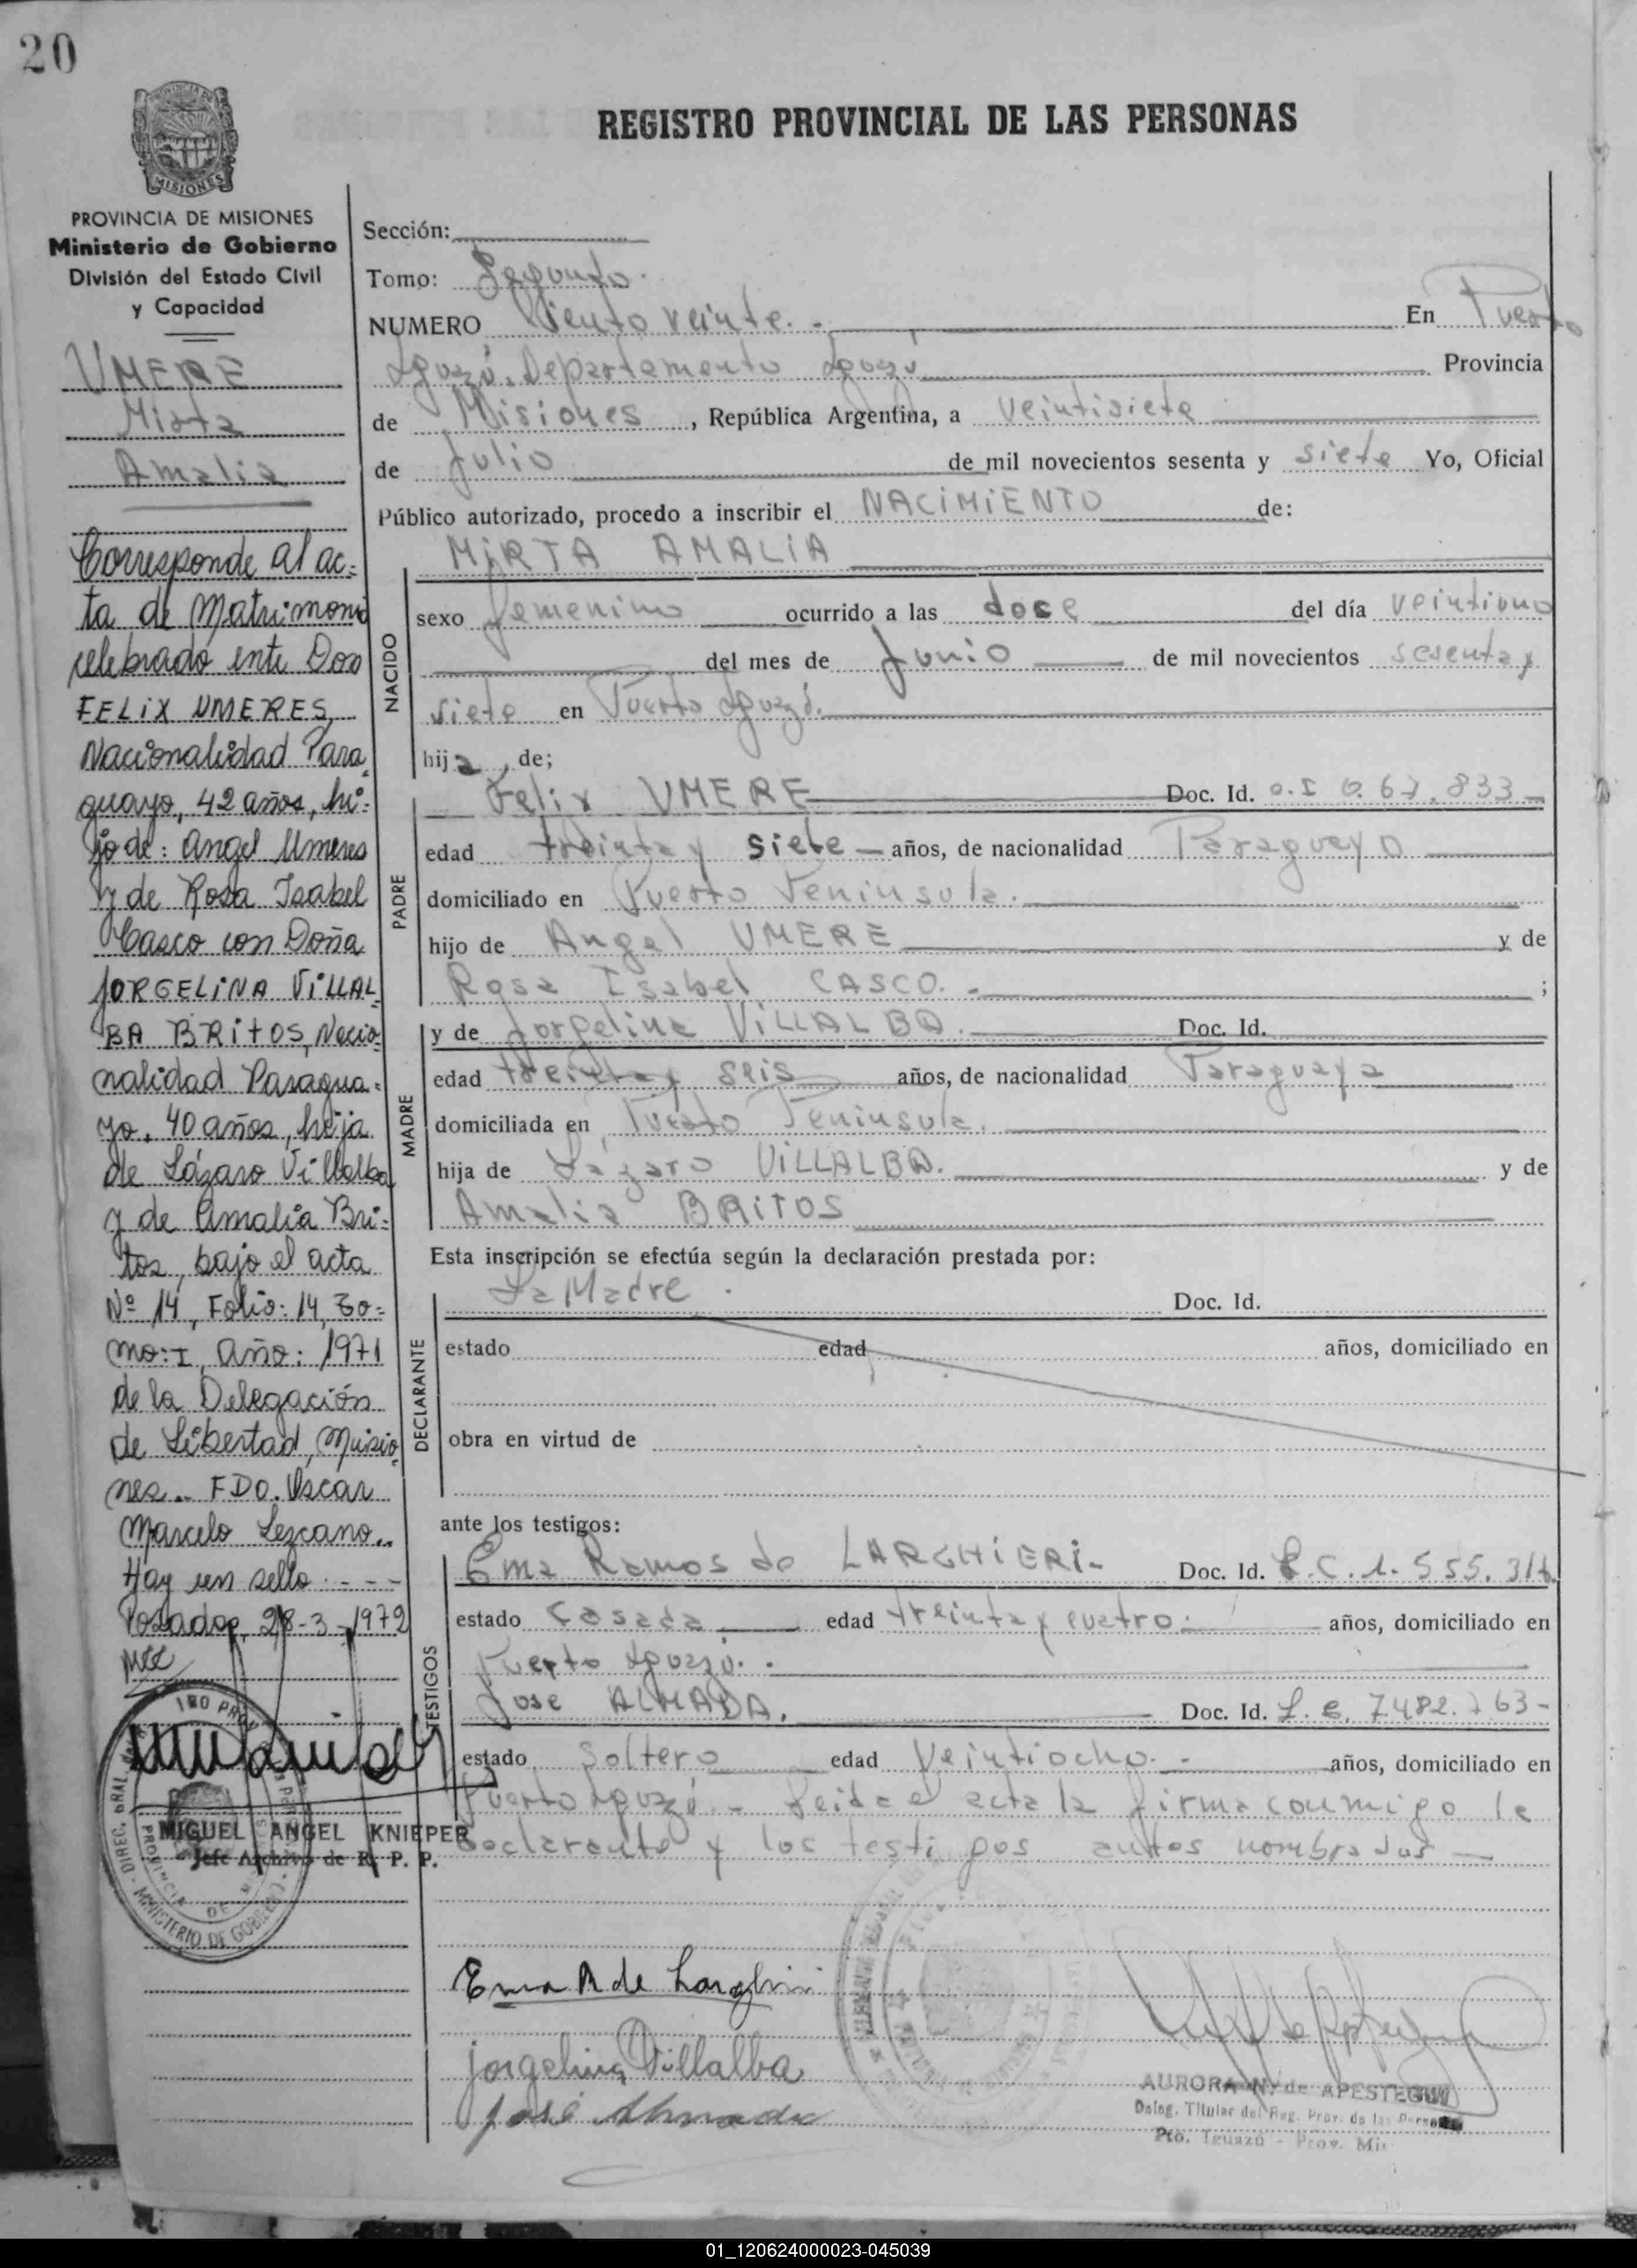 20
REGISTRO PROVINCIAL DE LAS PERSONAS
MISIONES
PROVINCIA DE MISIONES
Ministerio de Gobierno
División del Estado Civil
y Capacidad
UMERE
Mirta
Amalia
Corresponde al ac=
ta de Matrimonio
celebrado ente Don
FELIX UMERES,
Nacionalidad Para
guayo, 42 años, hi=
jo de: Angel Umeres
y de Rosa Isabel
Casco con Doña
JORGELINA VILLAL
BA BRITOS, Nacio=
nalidad Paragua=
yo, 40 años, hija
de Lázaro Villalba
y de Amalia Bri=
tos, bajo el acta
Nº 14, Folio: 14, To=
mo: I, Año: 1971
de la Delegación
de Libertad, Misio
nes.. FDO. Oscar
Marcelo Lezcano..
Hay un sello. - - -
Posadas, 28-3-1972
MIGUEL ANGEL KNIEPER
Jefe Archivo de R. P. P.
Sección:
Tomo: Segundo.
NUMERO Ciento veinte. - En Puerto
Iguazú. Departamento Iguazú Provincia
de Misiones, República Argentina, a veintisiete
de Julio de mil novecientos sesenta y siete Yo, Oficial
Público autorizado, procedo a inscribir el NACIMIENTO de:
MIRTA AMALIA
NACIDO
sexo femenino ocurrido a las doce del día veintiuno
del mes de Junio de mil novecientos sesenta y
siete en Puerto Iguazú.
hija, de;
PADRE
Felix UMERE Doc. Id.
edad treinta y siete años, de nacionalidad Paraguayo
domiciliado en Puerto Peninsula.
hijo de Angel UMERE y de
Rosa Isabel CASCO. - ;
MADRE
y de Jorgelina VILLALBA. Doc. Id.
edad treinta y seis años, de nacionalidad Paraguaya
domiciliada en Puerto Peninsula.
hija de Lázaro VILLALBA. y de
Amalia BRITOS
Esta inscripción se efectúa según la declaración prestada por:
DECLARANTE
La Madre. Doc. Id.
estado edad años, domiciliado en
obra en virtud de
ante los testigos:
TESTIGOS
Ema Ramos de LARGHIERI- Doc. Id.
estado casada edad treinta y cuatro. años, domiciliado en
Puerto Iguazú. -
Jose ALMADA. Doc. Id. L. E. 7.482.763-
estado soltero edad Veintiocho. - años, domiciliado en
Puerto Iguazú. - Leida el acta la firma conmigo la
declarante y los testigos antes nombrados -
Ema R de Larghieri
Jorgelina Villalba
José Almada
AURORA N. de APESTEGUI
Deleg. Titular del Reg. Prov. de las Personas
Pto. Iguazú - Prov. Mis
01_120624000023-045039